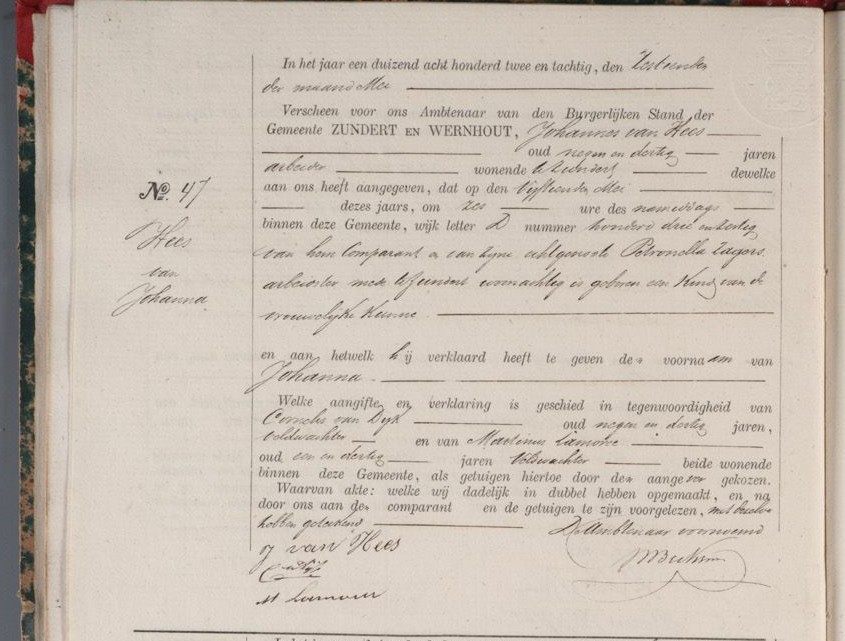 In het jaar een duizend acht honderd twee en tachtig, den Zestienden
der maand Mei
Verscheen voor ons Ambtenaar van den Burgerlijken Stand der
Gemeente ZUNDERT EN WERNHOUT, Johannes van Hees
oud negen en dertig jaren
arbeider wonende te Zundert dewelke
aan ons heeft aangegeven, dat op den vijftienden Mei
dezes jaars, om zes ure des namiddags
No. 47
binnen deze Gemeente, wijk letter D nummer honderd drie en
Hees
van
Johanna
van hem Comparant en van zyne echtgenoote Petronella Zagers
arbeidster mede te Zundert woonachtig is geboren een Kind van de
vrouwelijke Kunne
en aan hetwelk hij verklaard heeft te geven den voornaam van
Johanna
Welke aangifte en verklaring is geschied in tegenwoordigheid van
Cornelis van Dyk oud negen en dertig jaren,
veldwachter en van Martinus
oud een en dertig jaren Veldwachter beide wonende
binnen deze Gemeente, als getuigen hiertoe door den aangever gekozen.
Waarvan akte: welke wij dadelijk in dubbel hebben opgemaakt, en na
door ons aan den comparant en de getuigen te zijn voorgelezen, met dezelve
hebben geteekend
De Ambtenaar voornoemd
J van Hees